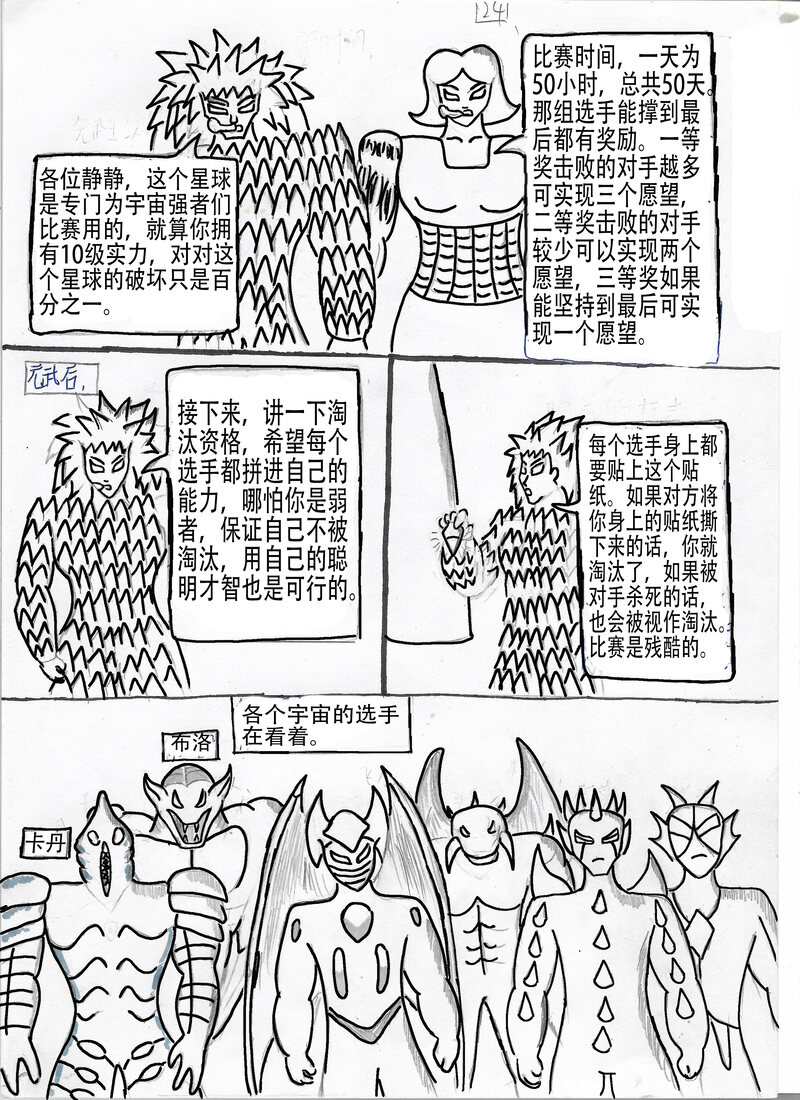 124
各位静静，这个星球
是专门为宇宙强者们
比赛用的，就算你拥
有10级实力，对对这
个星球的破坏只是百
分之一。
比赛时间，一天为
50小时，总共50天。
那组选手能撑到最
后都有奖励。一等
奖击败的对手越多
可实现三个愿望，
二等奖击败的对手
较少可以实现两个
愿望，三等奖如果
能坚持到最后可实
现一个愿望。
接下来，讲一下淘
汰资格，希望每个
选手都拼进自己的
能力，哪怕你是弱
者，保证自己不被
淘汰，用自己的聪
明才智也是可行的。
每个选手身上都
要贴上这个贴
纸。如果对方将
你身上的贴纸撕
下来的话，你就
淘汰了，如果被
对手杀死的话，
也会被视作淘汰。
比赛是残酷的。
各个宇宙的选手
在看着。
布洛
卡丹